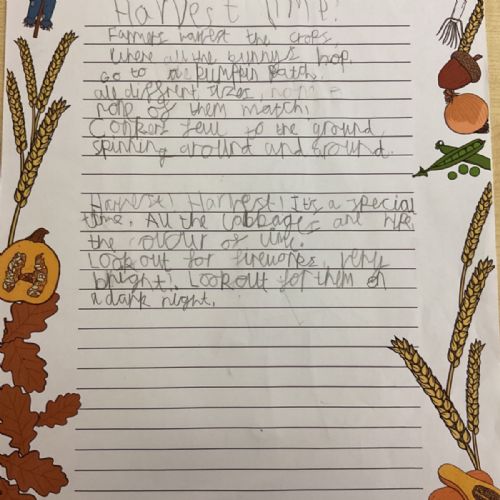 Harvest Time!
Farmers harvest the crops,
Where all the bunnys hop.
Go to the pumpkin patch.
all different sizes, none
none of them match.
Conkers fall to the ground
spinning around and around.
Harvest! Harvest! It's a special
time. All the cabbages are ripe,
the colour of lime.
Look out for fireworks, very
bright! Look out for them on
a dark night.